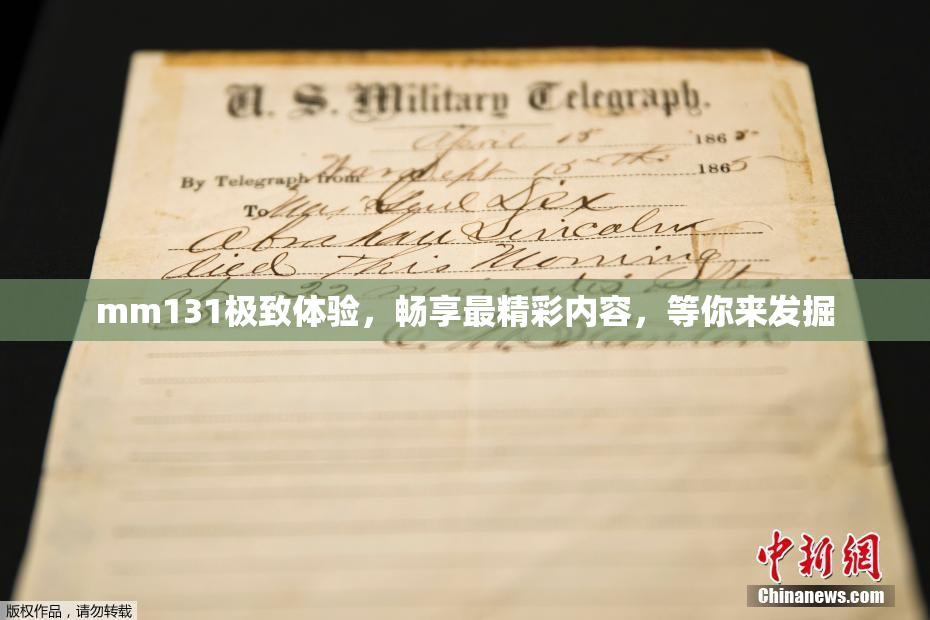 U. S. Military Telegraph.
April 15 1865
By Telegraph from War Dept 15th 1865
To Maj Genl Dix
Abraham Lincoln
died This Morning
at 22 minutes after
mm131极致体验，畅享最精彩内容，等你来发掘
E. M. Stanton
中新网
Chinanews.com
版权作品，请勿转载